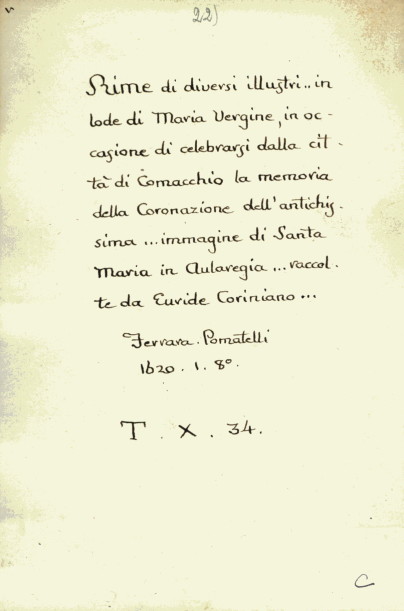 22)
Rime di diversi illustri.. in
lode di Maria Vergine, in oc-
casione di celebrarsi dalla cit-
tà di Comacchio la memoria
della Coronazione dell'antichis-
sima ... immagine di Santa
Maria in Aularegia ... raccol-
te da Euvide Coriniano ...
Ferrara. Pomatelli
1620. 1. 8º.
T. X. 34.
C